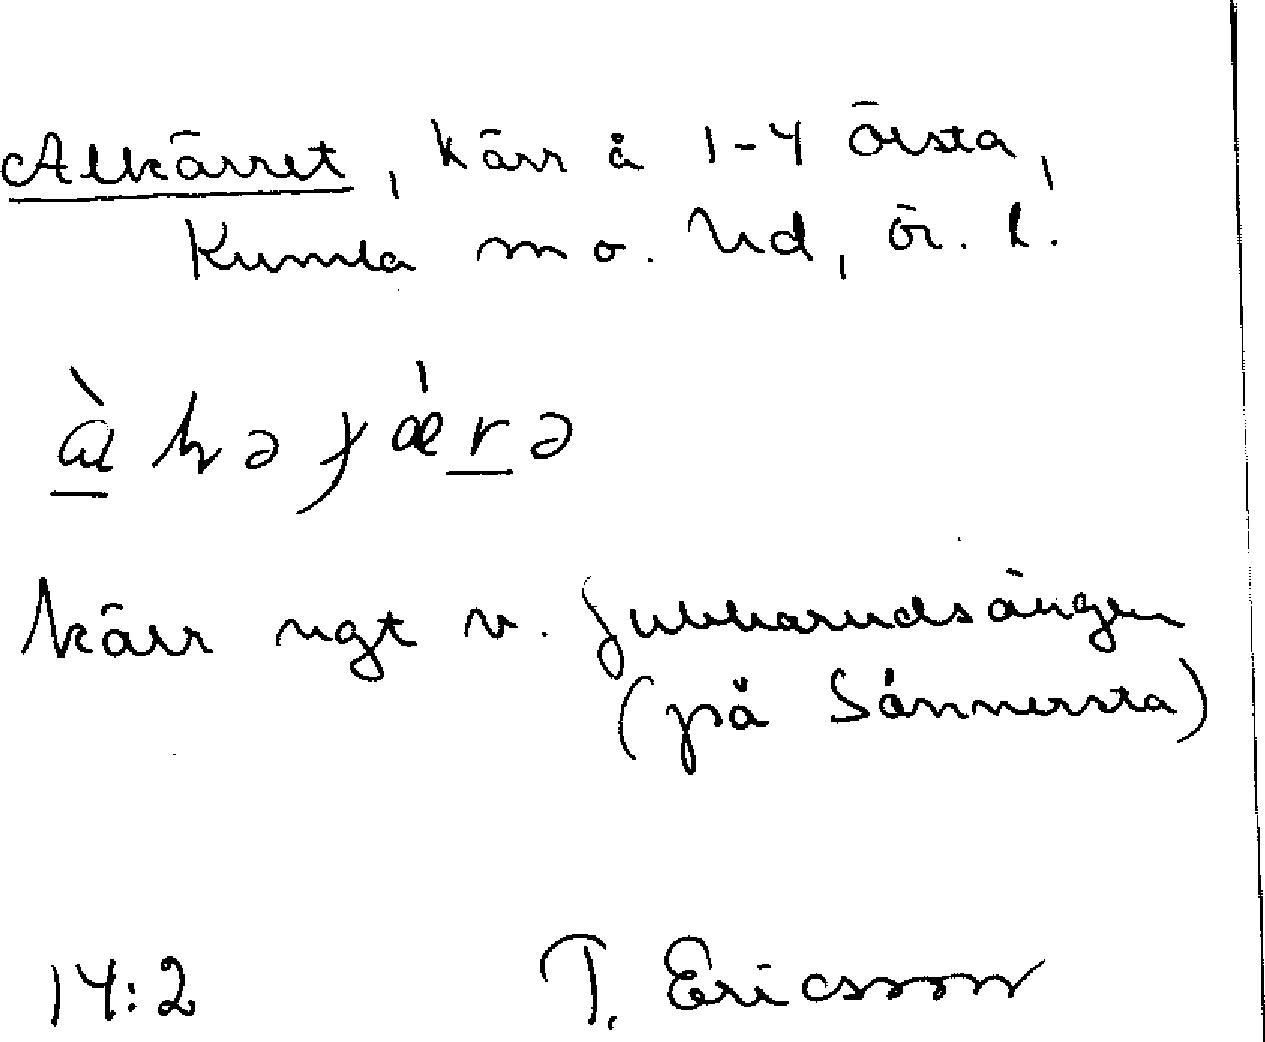 Alkärret, kärr å 1-4 Örsta,
Kumla mo. hd, ör. l.
kärr ngt v. Jubbarudsängen
(på Sånnersta)
14:2 T. Ericsson